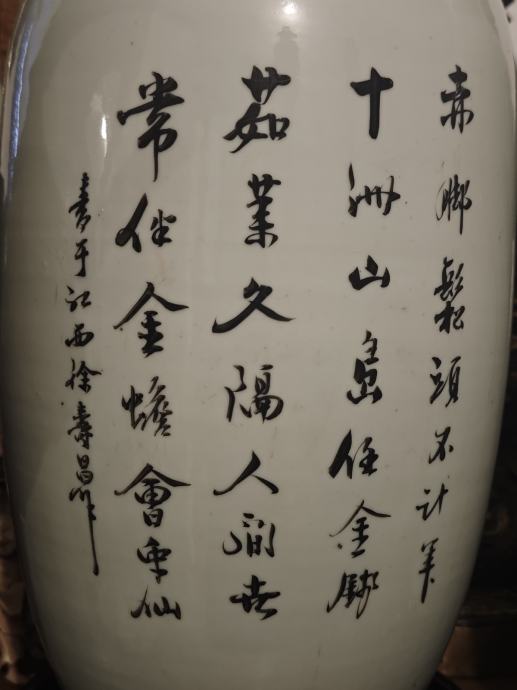 赤脚鬆頭不計年
十洲山島任金
茹葷久隔人間世
常伴金蟾會仙
書于江西徐壽昌作